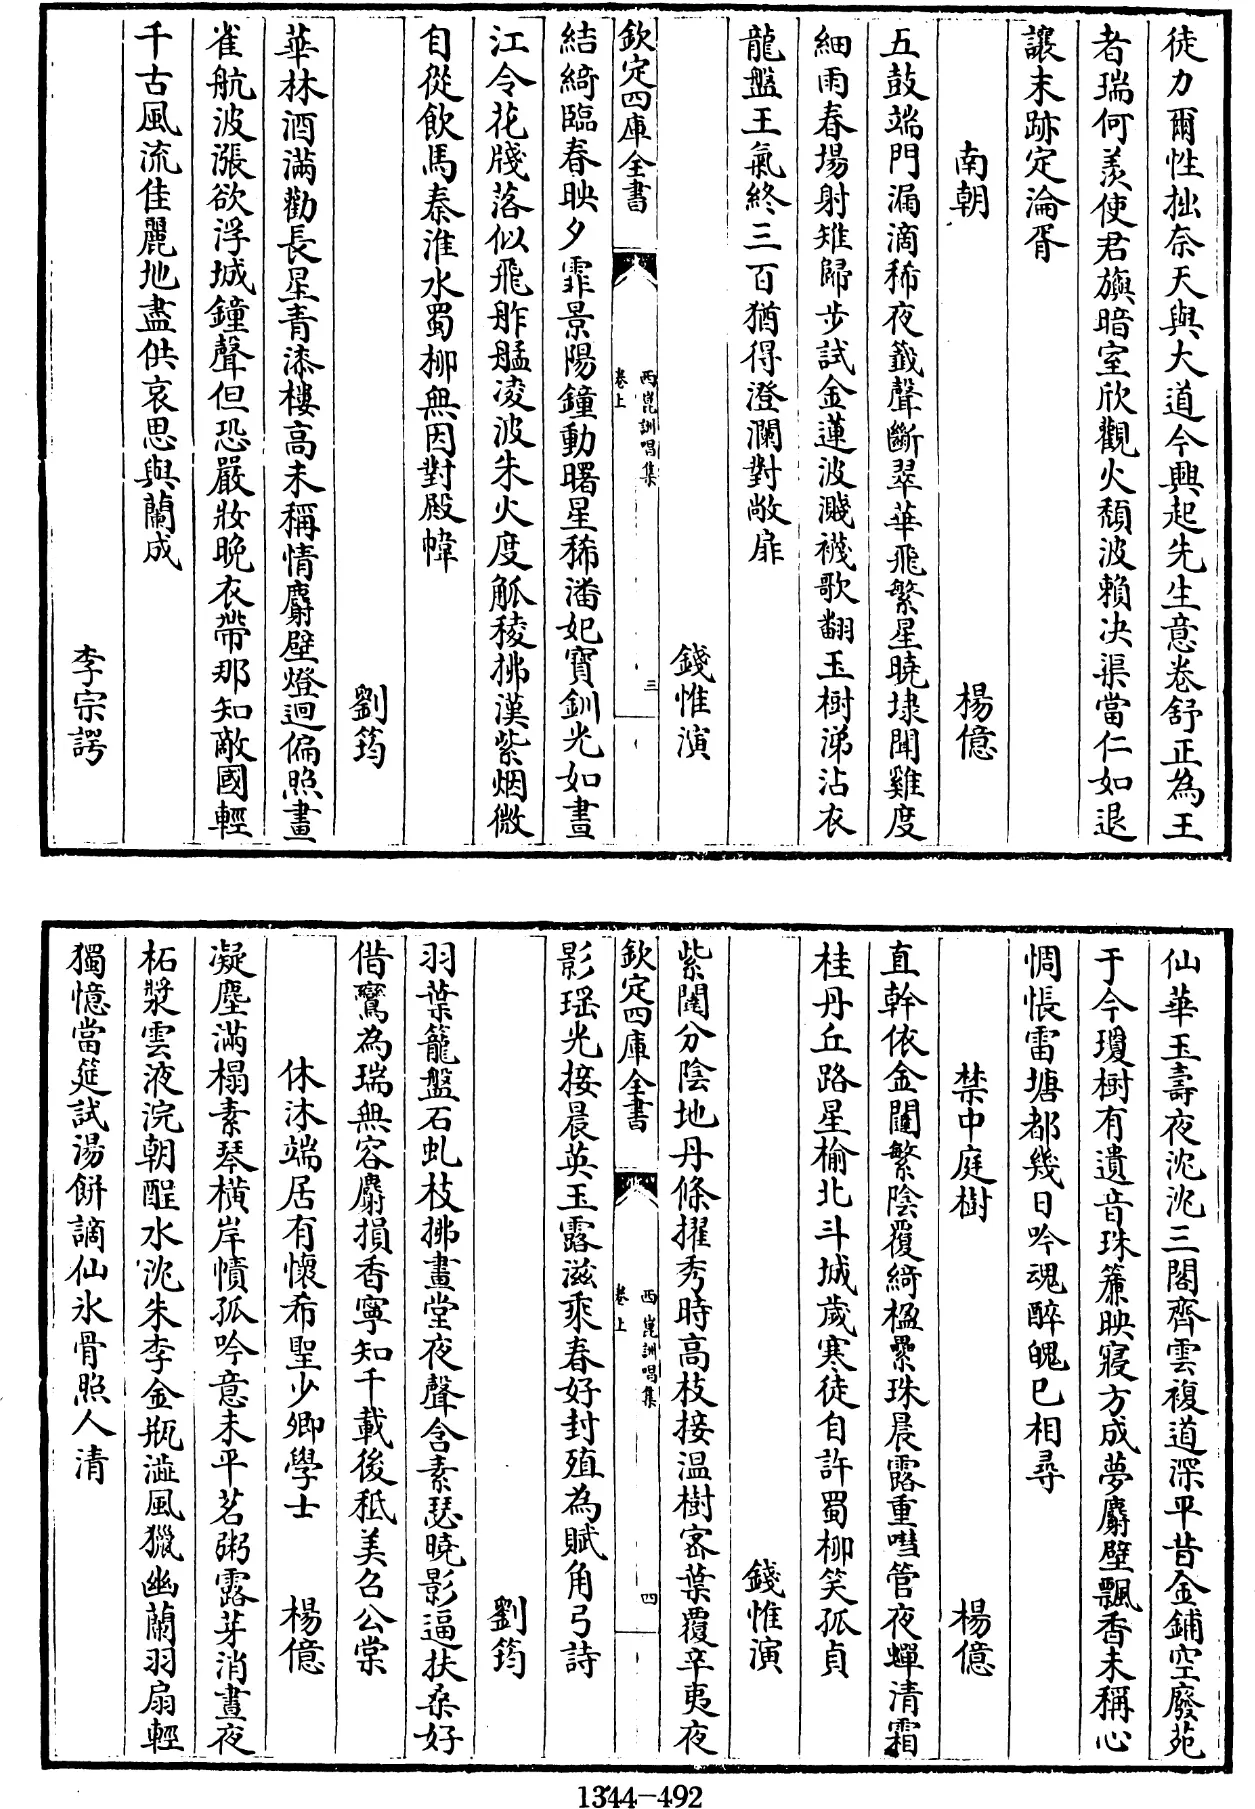 徒力爾性拙奈天與大道今興起先生意卷舒正為王
者瑞何羨使君旟暗室欣觀火頹波賴决渠當仁如退
讓末跡定淪胥
南朝
楊億
五鼓端門漏滴稀夜籤聲斷翠華飛繁星曉埭聞雞度
細雨春場射雉歸步試金蓮波濺襪歌翻玉樹涕沾衣
龍盤王氣終三百猶得澄瀾對敞扉
錢惟演
欽定四庫全書
西崑訓唱集
卷上
三
結綺臨春映夕霏景陽鐘動曙星稀潘妃寶釧光如晝
江令花牋落似飛舴艋凌波朱火度觚稜拂漢紫烟微
自從飲馬秦淮水蜀柳無因對殿幃
劉筠
華林酒滿勸長星青漆樓高未稱情麝壁燈迴偏照晝
雀航波漲欲浮城鐘聲但恐嚴妝晚衣帶那知敵國輕
千古風流佳麗地盡供哀思與蘭成
李宗諤
仙華玉壽夜沈沈三閣齊雲複道深平昔金鋪空廢苑
于今瓊樹有遺音珠簾映寢方成夢麝壁飄香未稱心
惆悵雷塘都幾日吟魂醉魄已相尋
禁中庭樹
楊億
直幹依金闥繁陰覆綺楹纍珠晨露重嘒管夜蟬清霜
桂丹丘路星榆北斗城歲寒徒自許蜀柳笑孤貞
錢惟演
紫闥分陰地丹條擢秀時高枝接温樹密葉覆辛夷夜
欽定四庫全書
西崑訓唱集
卷上
四
影瑶光接晨英玉露滋乘春好封殖為賦角弓詩
劉筠
羽葉籠盤石虬枝拂畫堂夜聲含素瑟曉影逼扶桑好
借鸞為瑞無容麝損香寧知千載後秪美召公棠
休沐端居有懷希聖少卿學士
楊億
凝塵滿榻素琴橫岸幘孤吟意未平茗粥露芽消晝夜
柘漿雲液浣朝酲水沈朱李金瓶澁風獵幽蘭羽扇輕
獨憶當筵試湯餅謫仙氷骨照人清
1344-492